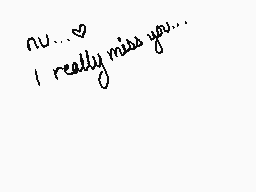 nu...♡
I really miss you...